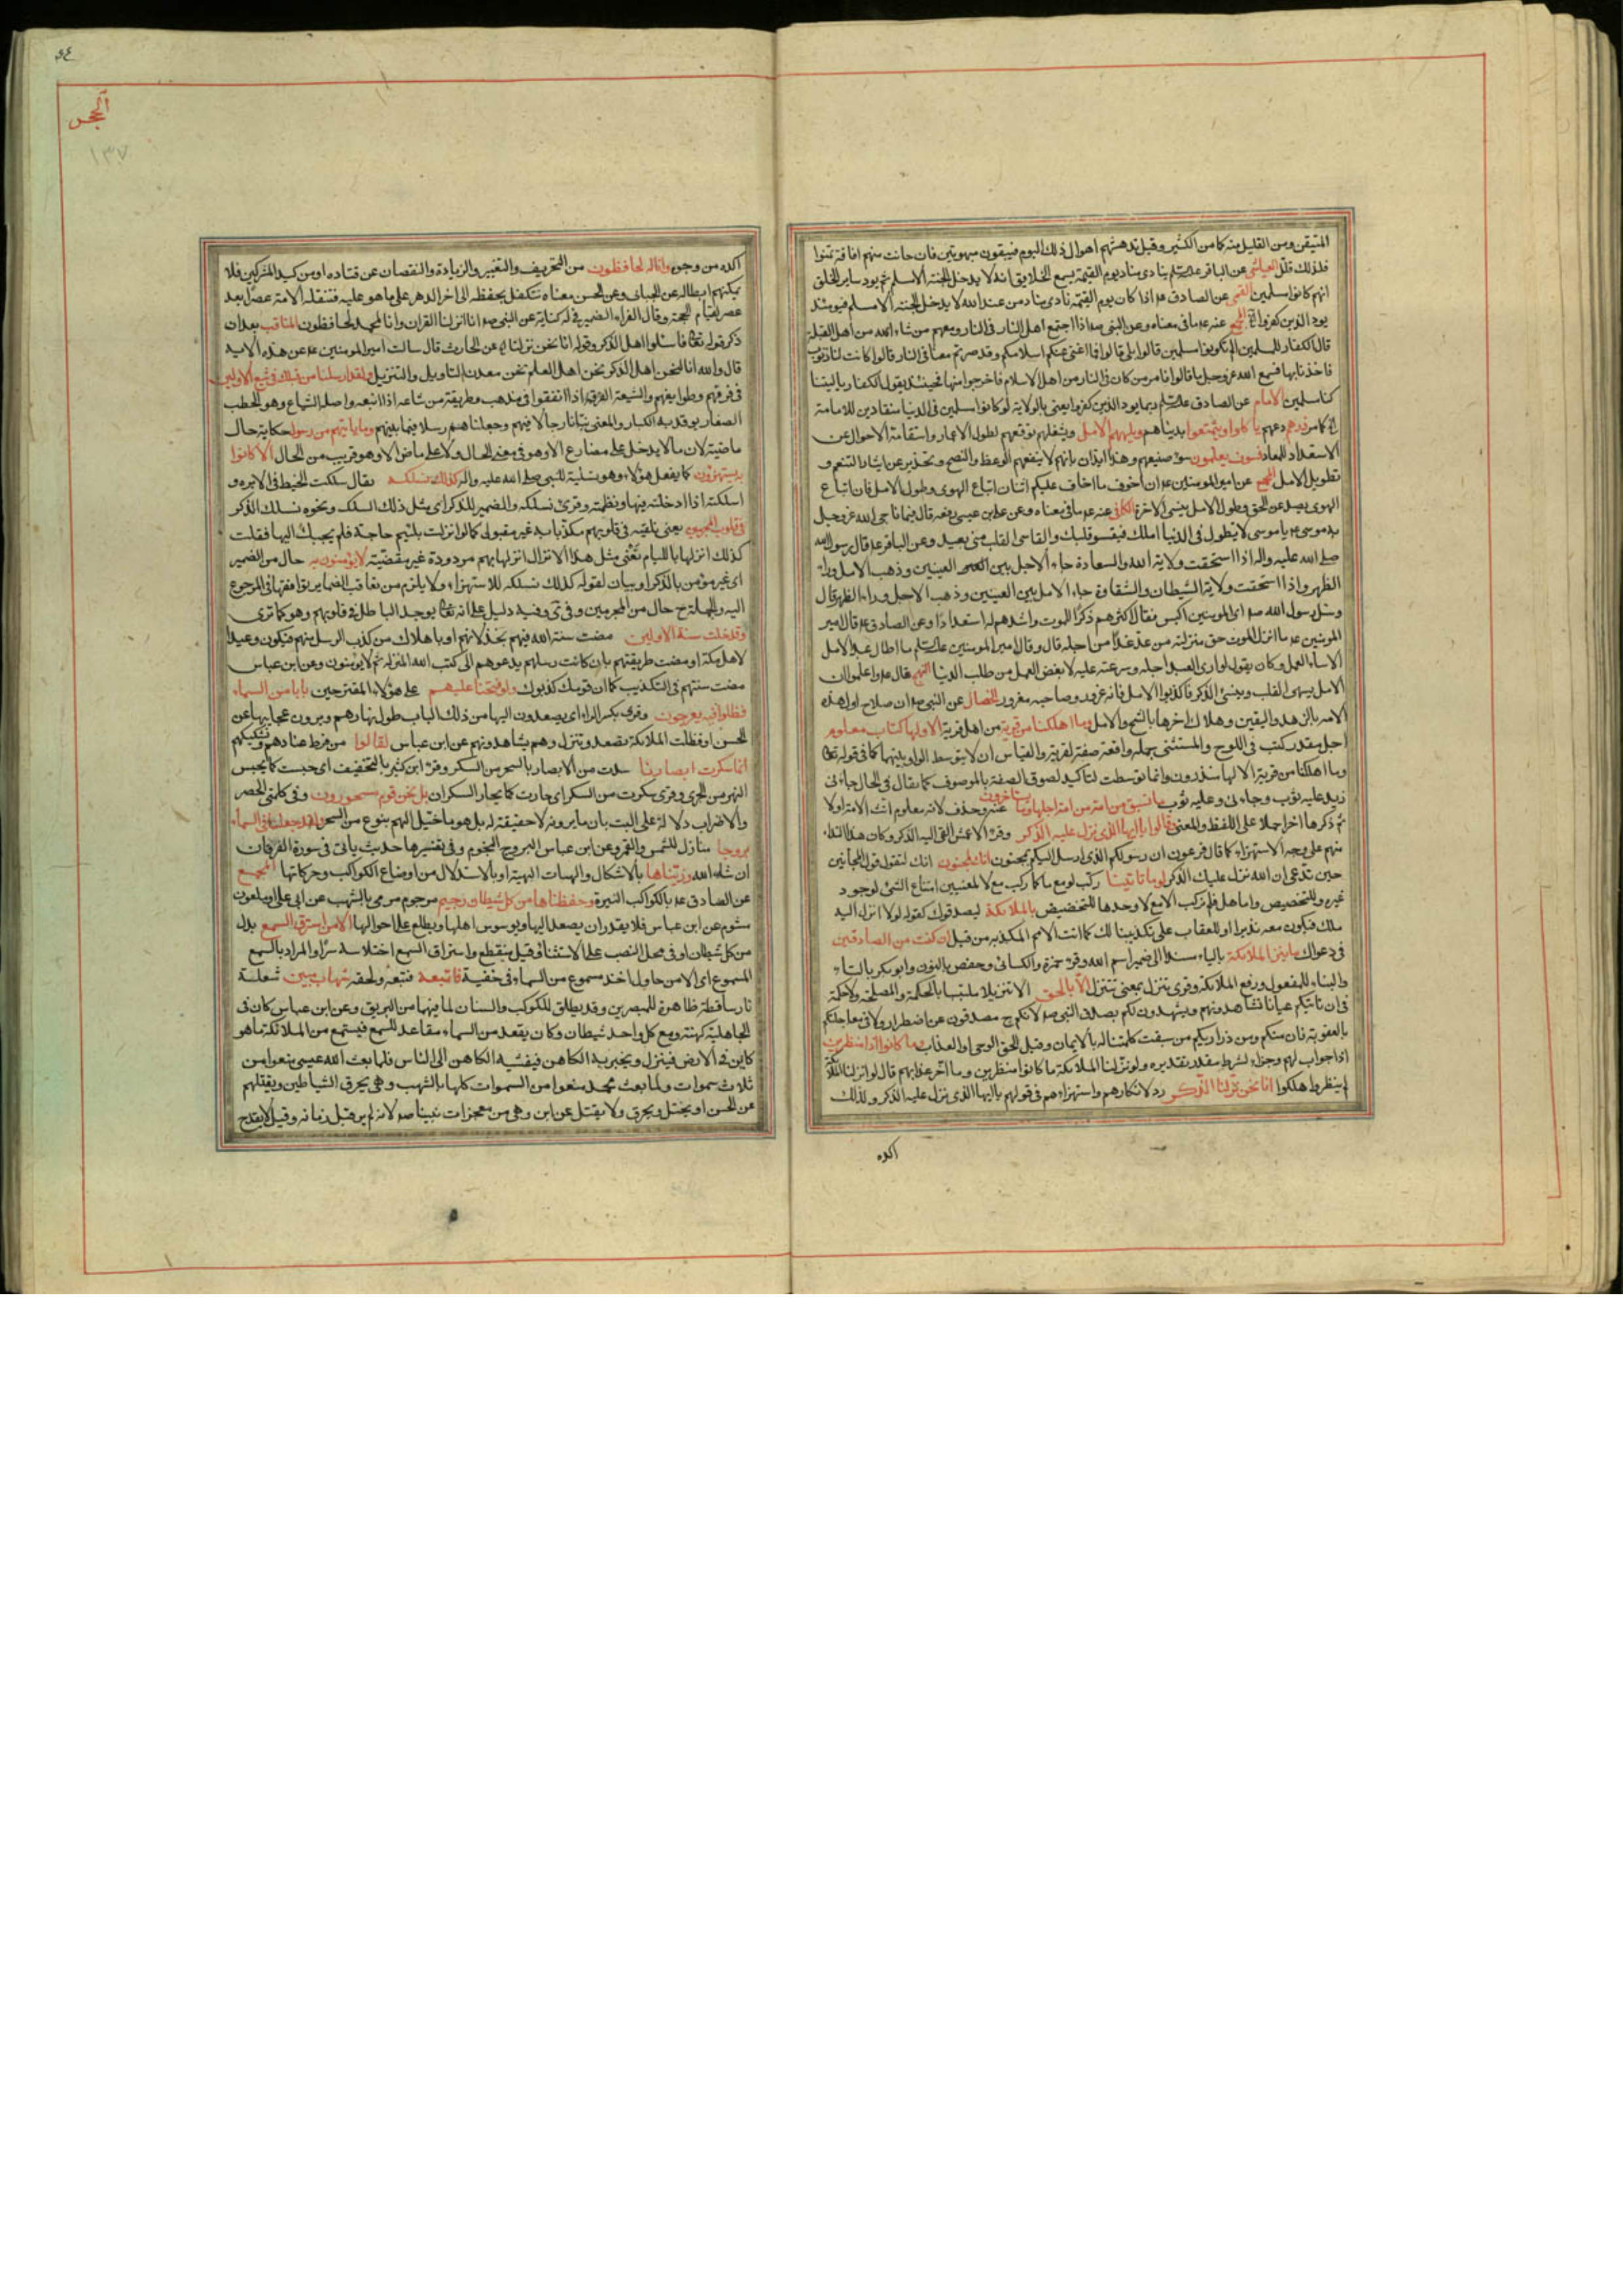 المتيقن ومن القليل منه كما من الكثير وقيل تدهشهم اهوال ذلك اليوم فيبقون مبهوتين فان حانت منهم افاقة تمنوا
فلذلك قلل العياشي عن الباقر ينادي مناد يوم القيمة يسمع الخلايق انه لا يدخل الجنة الا مسلم ثم يود ساير الخلق
انهم كانوا مسلمين القمي عن الصادق اذا كان يوم القيمة نادى مناد من عند الله لا يدخل الجنة الا مسلم فيومئذ
يود الذين كفروا المجمع عنه ما في معناه وعن النبي اذا اجتمع اهل النار في النار ومعهم من شاء الله من اهل القبلة
قال الكفار للمسلمين الم تكونوا مسلمين قالوا بلى قالوا فما اغنى عنكم اسلامكم وقد صرتم معنا في النار قالوا كانت لنا ذنوب
فاخذنا بها فسمع الله عز وجل ما قالوا فامر من كان في النار من اهل الاسلام فاخرجوا منها فحينئذ يقول الكفار يا ليتنا
كنا مسلمين الامام عن الصادق ربما يود الذين كفروا يعني بالولاية لو كانوا مسلمين في الدنيا منقادين للامامة
ذرهم دعهم ياكلوا ويتمتعوا بدنياهم ويلههم الامل ويشغلهم توقعهم لطول الاعمار واستقامة الاحوال عن
الاستعداد للمعاد فسوف يعلمون سوء صنيعهم وهذا ايذان بانهم لا ينفعهم الوعظ والنصح وتحذير عن ايثار التنعم و
تطويل الامل عن امير المومنين ان اخوف ما اخاف عليكم اثنان اتباع الهوى وطول الامل فان اتباع
الهوى يصد عن الحق وطول الامل ينسي الاخرة الكافي عنه ما في معناه وعن علي بن عيسى رفعه قال فيما ناجى الله عز وجل
به موسى يا موسى لا تطول في الدنيا املك فيقسو قلبك والقاسي القلب مني بعيد وعن الباقر قال رسول الله
صلى الله عليه واله اذا استحقت ولاية الله والسعادة جاء الاجل بين العينين وذهب الامل وراء
الظهر واذا استحقت ولاية الشيطان والشقاوة جاء الامل بين العينين وذهب الاجل وراء الظهر قال
وسئل رسول الله اي المومنين اكيس فقال اكثرهم ذكرا للموت واشدهم له استعدادا وعن الصادق قال امير
المومنين ما انزل الموت حق منزلته من عد غدا من اجله قال وقال امير المومنين ما اطال عبد الامل
الا ساء العمل وكان يقول لو راى العبد اجله وسرعته عليه لابغض العمل من طلب الدنيا النهج قال واعلموا ان
الامل يسهى القلب وينسى الذكر فاكذبوا الامل فانه غرور وصاحبه مغرور الخصال عن النبي ان صلاح اول هذه
الامة بالزهد واليقين وهلاك اخرها بالشح والامل وما اهلكنا من قرية من اهل قرية الا ولها كتاب معلوم
اجل مقدر كتب في اللوح والمستثنى جملة واقعة صفة لقرية والقياس ان لا يتوسط الواو بينهما كما في قوله
وما اهلكنا من قرية الا لها منذرون وانما توسطت لتاكيد لصوق الصفة بالموصوف كما يقال في الحال جاءني
زيد عليه ثوب وجاءني وعليه ثوب ما تسبق من امة من امة اجلها وما يستاخرون عنه وحذف لانه معلوم انث الامة اولا
ثم ذكرها اخرا حملا على اللفظ والمعنى وقالوا يا ايها الذي نزل عليه الذكر وقرء الاعمش القي اليه الذكر وكان هذا النداء
منهم على وجه الاستهزاء كما قال فرعون ان رسولكم الذي ارسل اليكم لمجنون انك لمجنون انك لتقول قول المجانين
حين تدعي ان الله نزل عليك الذكر لوما تاتينا ركب لو مع ما كما ركب مع لا لمعنيين امتناع الشئ لوجود
غيره والتحضيض واما هل فلم تركب الا مع لا وحدها للتحضيض بالملائكة ليصدقوك كقوله لولا انزل اليه
ملك فيكون معه نذيرا او للعقاب على تكذيبنا لك كما اتت الامم المكذبة من قبل ان كنت من الصادقين
في دعواك ما ينزل الملائكة بالياء مسندا الى ضمير اسم الله وقرء حمزة والكسائي وحفص بالنون وابو بكر بالتاء
والبناء للمفعول ورفع الملائكة وقرئ تنزل بمعنى تتنزل الا بالحق الا تنزيلا ملتبسا بالحكمة والمصلحة ولا حكمة
في ان تاتيكم عيانا تشاهدونهم ويشهدون لكم بصدق النبي لانكم مصدقون عن اضطرار ولا في معاجلتكم
بالعقوبة فان منكم ومن ذراريكم من سبقت كلمتنا له بالايمان وقيل الحق الوحي او العذاب وما كانوا اذا منظرين
اذا جواب لهم وجزاء لشرط مقدر تقديره ولو نزلنا الملائكة ما كانوا منظرين وما اخر عذابهم قال لو انزلنا الملائكة
لم ينظروا هلكوا انا نحن نزلنا الذكر رد لانكارهم واستهزاءهم في قولهم يا ايها الذي نزل عليه الذكر ولذلك
اكده
الحجر
١٣٧
اكده من وجوه وانا له لحافظون من التحريف والتغيير والزيادة والنقصان عن قتاده او من كيد المشركين فلا
يمكنهم ابطاله عن الجبائي وعن الحسن معناه نتكفل بحفظه الى اخر الدهر على ما هو عليه فتنقله الامة عصرا بعد
عصر لقيام الحجة وقال الفراء الضمير في له كناية عن النبي انا انزلنا القران وانا لمحمد لحافظون المناقب بعد ان
ذكر قوله فاسئلوا اهل الذكر وقوله انا نحن نزلنا عن الحارث قال سالت امير المومنين عن هذه الاية
قال والله انا لنحن اهل الذكر نحن اهل العلم نحن معدن التاويل والتنزيل ولقد ارسلنا من قبلك في شيع الاولين
في فرقهم وطوايفهم والشيعة الفرقة اذا اتفقوا في مذهب وطريقة من شاعه اذا تبعه واصله الشياع وهو الحطب
الصغار يوقد به الكبار والمعنى نبانا رجالا فيهم وجعلناهم رسلا فيما بينهم وما ياتيهم من رسول حكاية حال
ماضية لان ما لا يدخل على مضارع الا وهو في معنى الحال ولا على ماض الا وهو قريب من الحال الا كانوا
به يستهزؤن كما يفعل هؤلاء وهو تسلية للنبي صلى الله عليه واله كذلك نسلكه يقال سلكت الخيط في الابرة و
اسلكته اذا ادخلته فيها ونظمته وقرئ نسلكه والضمير للذكر اي مثل ذلك السلك ونحوه نسلك الذكر
في قلوب المجرمين يعني نلقيه في قلوبهم مكذبا به غير مقبول كما لو انزلت بلئيم حاجة فلم يجبك اليها فقلت
كذلك انزلها باللئام تعني مثل هذا الانزال انزلها بهم مردودة غير مقضية لا يؤمنون به حال من الضمير
اي غير مؤمن بالذكر او بيان لقوله كذلك نسلكه للاستهزاء ولا يلزم من تعاقب الضماير توافقها في المرجوع
اليه والجملة حال من المجرمين وفيه دليل على انه يوجد الباطل في قلوبهم وهو كما ترى
وقد خلت سنة الاولين مضت سنة الله فيهم بخذلانهم او باهلاك من كذب الرسل منهم فيكون وعيدا
لاهل مكة او مضت طريقتهم بان كانت رسلهم يدعوهم الى كتب الله المنزلة ثم لا يؤمنون وعن ابن عباس
مضت سنتهم في التكذيب كما ان قومك كذبوك ولو فتحنا عليهم على هؤلاء المقترحين بابا من السماء
فظلوا فيه يعرجون وقرئ بكسر الراء اي يصعدون اليها من ذلك الباب طول نهارهم ويرون عجايبها عن
الحسن او فظلت الملائكة تصعد وتنزل وهم يشاهدونهم عن ابن عباس لقالوا من فرط عنادهم وتشكيكهم
انما سكرت ابصارنا سدت من الابصار بالسحر من السكر وقرء ابن كثير بالتخفيف اي حبست كما يحبس
النهر من الجري وقرئ سكرت من السكر اي حارت كما يحار السكران بل نحن قوم مسحورون وفي كلمتي الحصر
والاضراب دلالة على البت بان ما يرونه لا حقيقة له بل هو ما خيل اليهم بنوع من السحر ولقد جعلنا في السماء
بروجا منازل للشمس والقمر وعن ابن عباس البروج النجوم وفي تفسيرها حديث ياتي في سورة الفرقان
ان شاء الله وزيناها بالاشكال والهيات البهية او بالاستدلال من اوضاع الكواكب وحركاتها المجمع
عن الصادق بالكواكب النيرة وحفظناها من كل شيطان رجيم مرجوم مرمى بالشهب عن ابي علي او ملعون
مشوم عن ابن عباس فلا يقدر ان يصعد اليها ويوسوس اهلها ويطلع على احوالها الا من استرق السمع بدل
من كل شيطان او في محل النصب على الاستثناء وقيل منقطع واستراق السمع اختلاسه سرا والمراد بالسمع
المسموع اي الا من حاول اخذ مسموع من السماء في خفية فاتبعه فتبعه ولحقه شهاب مبين شعلة
نار ساقطة ظاهرة للمبصرين وقد يطلق للكوكب والسنان لما فيهما من البريق وعن ابن عباس كان في
الجاهلية كهنة ومع كل واحد شيطان وكان يقعد من السماء مقاعد للسمع فيستمع من الملائكة ما هو
كاين في الارض فينزل ويخبر به الكاهن فيفشيه الكاهن الى الناس فلما بعث الله عيسى منعوا من
ثلاث سموات ولما بعث محمد منعوا من السموات كلها بالشهب وهي يحرق الشياطين ويقتلهم
عن الحسن او يختل ويحرق ولا يقتل عن ابن وهي من معجزات نبينا لانه لم ير قبل زمانه وقيل لا يقدح